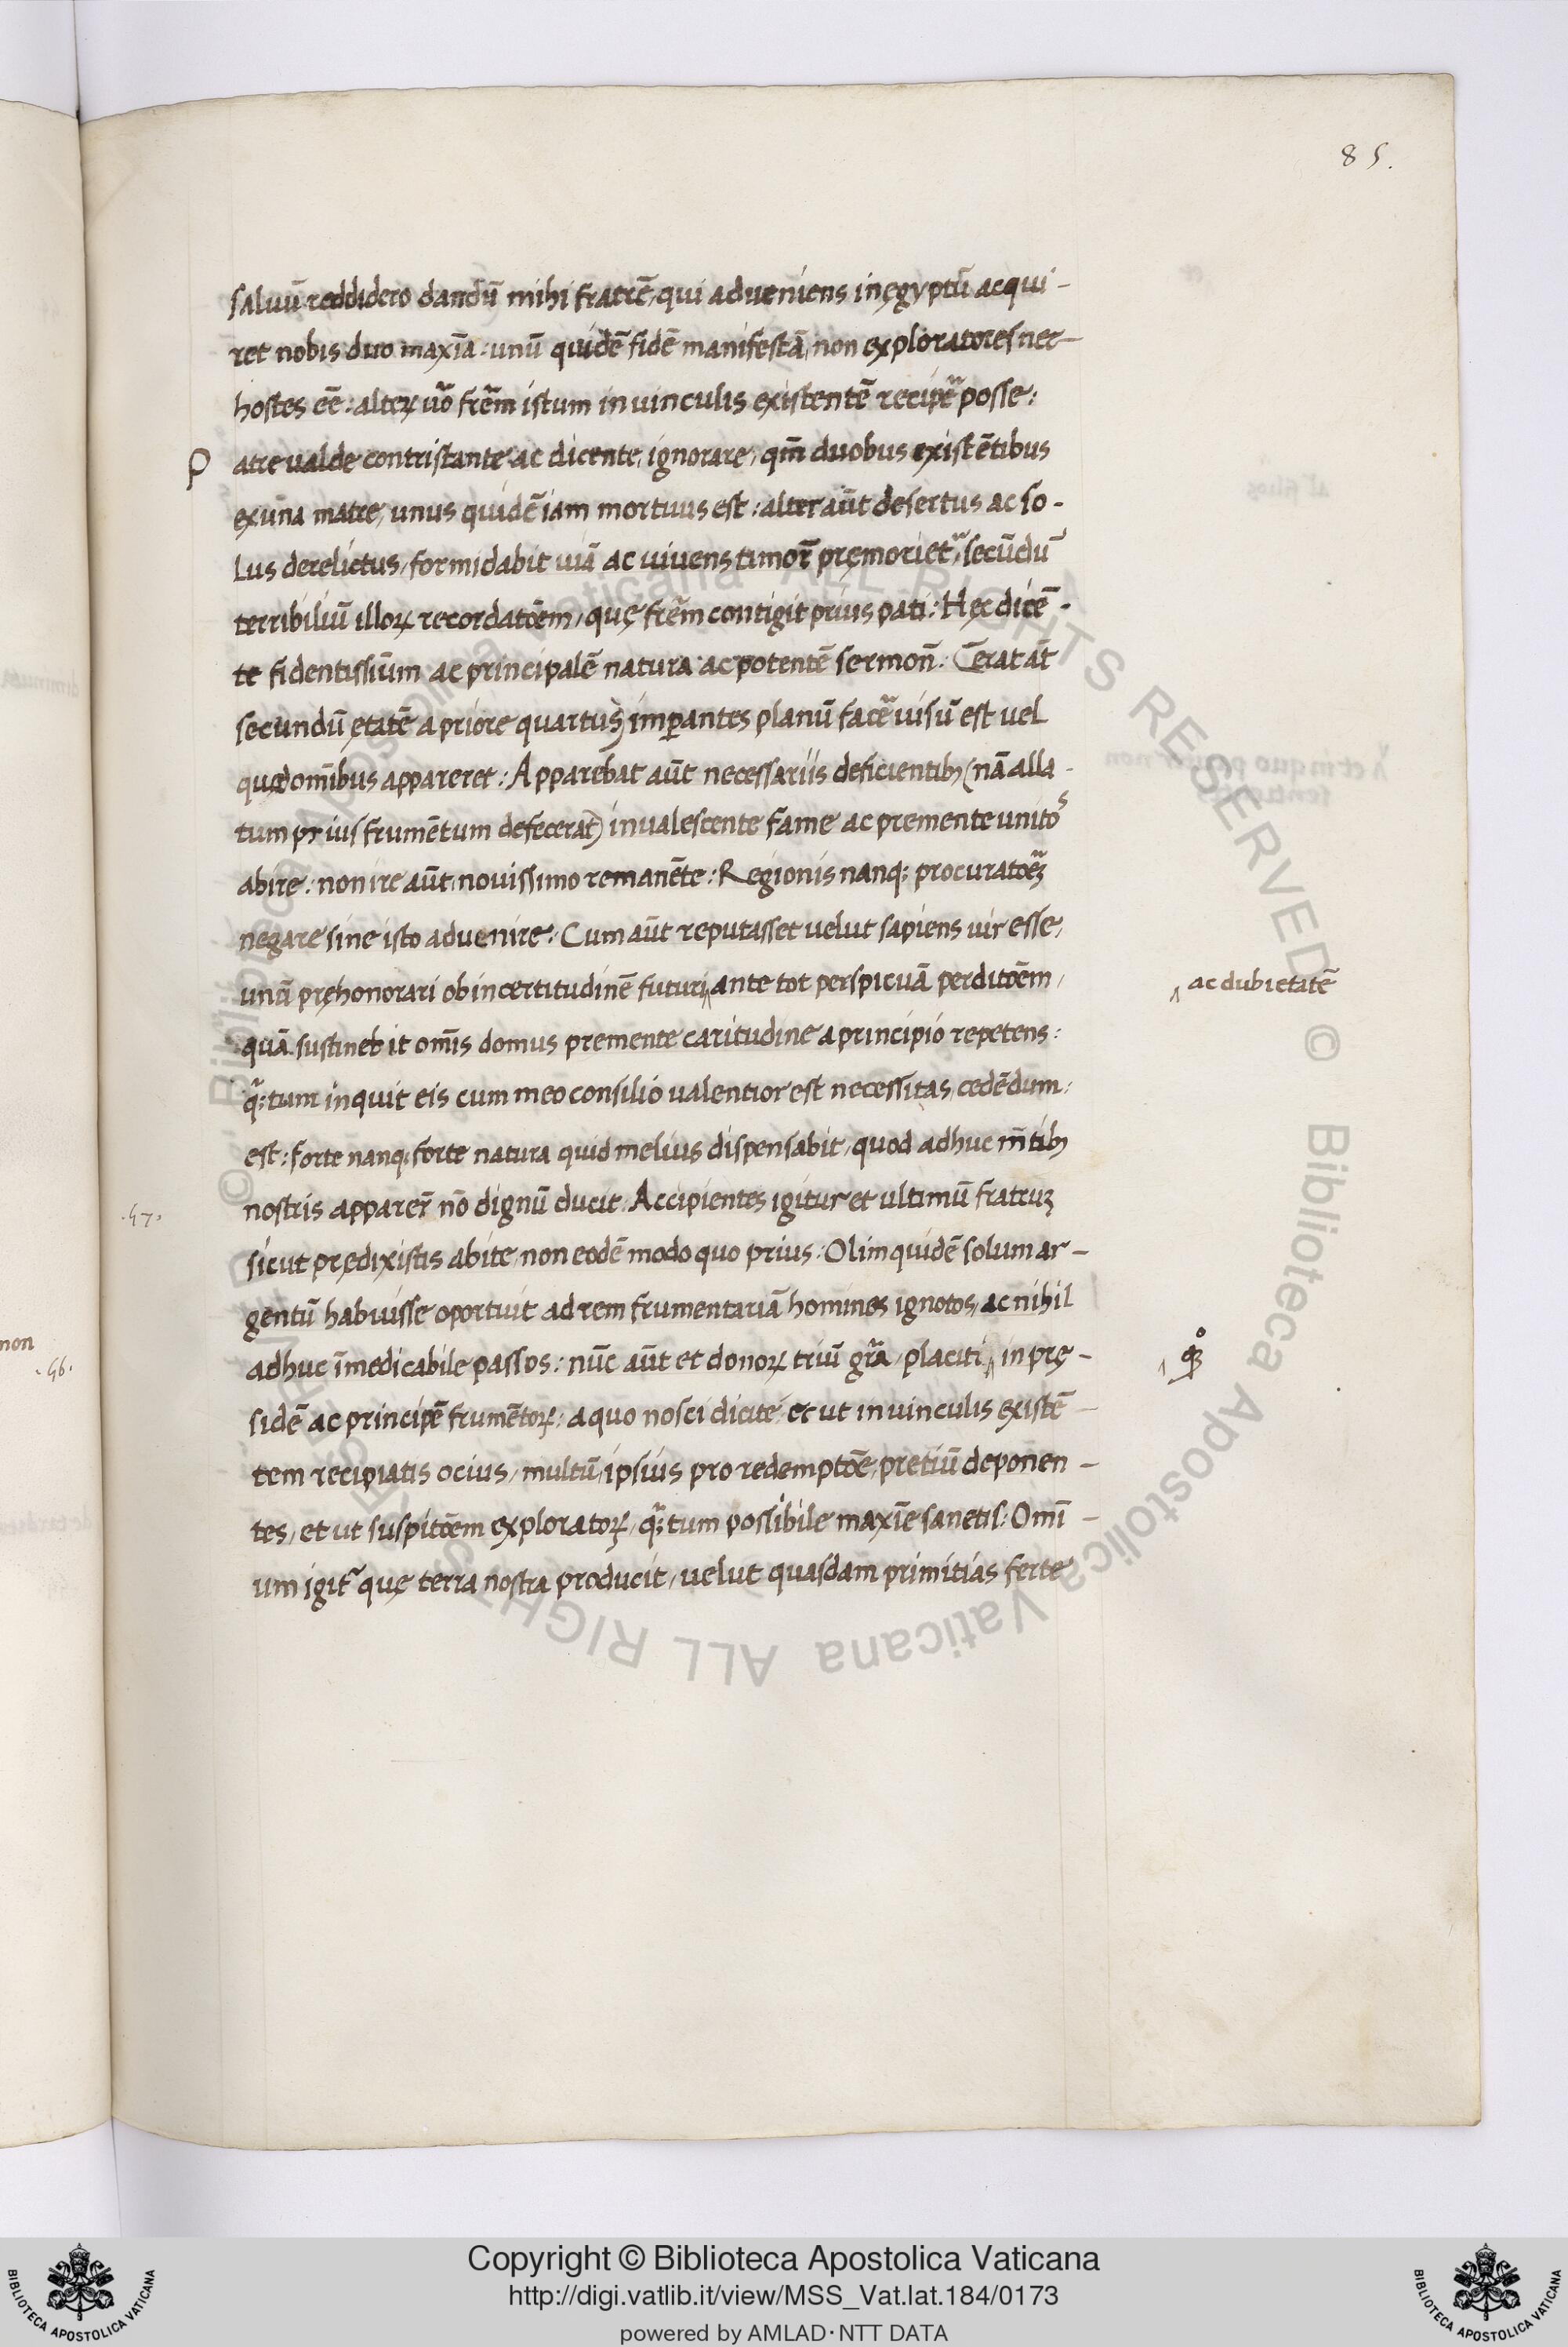 85.
saluū reddidero dandū mihi fratrē, qui adueniens in ęgyptū acqui-
ret nobis duo maxīa: unū quidē fidē manifestā, non exploratores nec
hostes eē: alteꝝ uō frēm istum in uinculis existentē recipe posse:
Patre ualde contristante ac dicente, ignorare, qm̄ duobus existētibus
ex una matre, unus quidē iam mortuus est: alter aūt desertus ac so-
lus derelictus, formidabit uiā ac uiuens timor̄ pręmoriet, secūdū
terribiliū illoꝝ recordatōem, quę frēm contigit prius pati: Hęc dicē-
te fidentissiūm ac principalē natura ac potentē sermon̄. (erat āt
secundū ętatē a priore quartus) impantes planū face uisū est uel
quę omībus appareret: Apparebat aūt necessariis deficientibꝫ (nā alla-
tum prius frumētum defecerat) inualescente fame ac premente unitos
abire: non ire aūt nouissimo remanēte: Regionis nanqꝫ procuratoꝝ
negare sine isto aduenire: Cum aūt reputasset uelut sapiens uir esse,
unū pręhonorari ob incertitudinē futuri ‸ ante tot perspicuā perditōem,
‸ ac dubietatē
quā sustinebit omīs domus premente caritudine a principio repetens:
qꝫtum inquit eis cum meo consilio ualentior est necessitas, cedēdum
est: forte nanqꝫ forte natura quid melius dispensabit, quod adhuc mītibꝫ
nostris apparer̄ nō dignū ducit. Accipientes igitur et ultimū fratruꝫ
.47.
sicut prędixistis abite, non eodē modo quo prius: Olim quidē solum ar-
gentū habuisse oportuit ad rem frumentariā homines ignotos, ac nihil
adhuc īmedicabile passos: nūc aūt et donoꝝ triū grā, placiti ‸ in prę-
non
.46.
sidē ac principē frumētoꝝ: a quo nosci dicite: et ut in uinculis existē-
tem recipiatis ocius, multū ipsius pro redemptōe, pretiū deponen-
tes, et ut suspitōem exploratoꝝ, qꝫtum possibile maxīe sanetis: Omī-
um igit quę terra nostra producit, uelut quasdam primitias ferte
© Biblioteca Apostolica Vaticana ALL RIGHTS RESERVED © Biblioteca Apostolica Vaticana ALL RIGHTS RESERVED
BIBLIOTECA APOSTOLICA VATICANA
Copyright © Biblioteca Apostolica Vaticana
http://digi.vatlib.it/view/MSS_Vat.lat.184/0173
powered by AMLAD·NTT DATA
BIBLIOTECA APOSTOLICA VATICANA